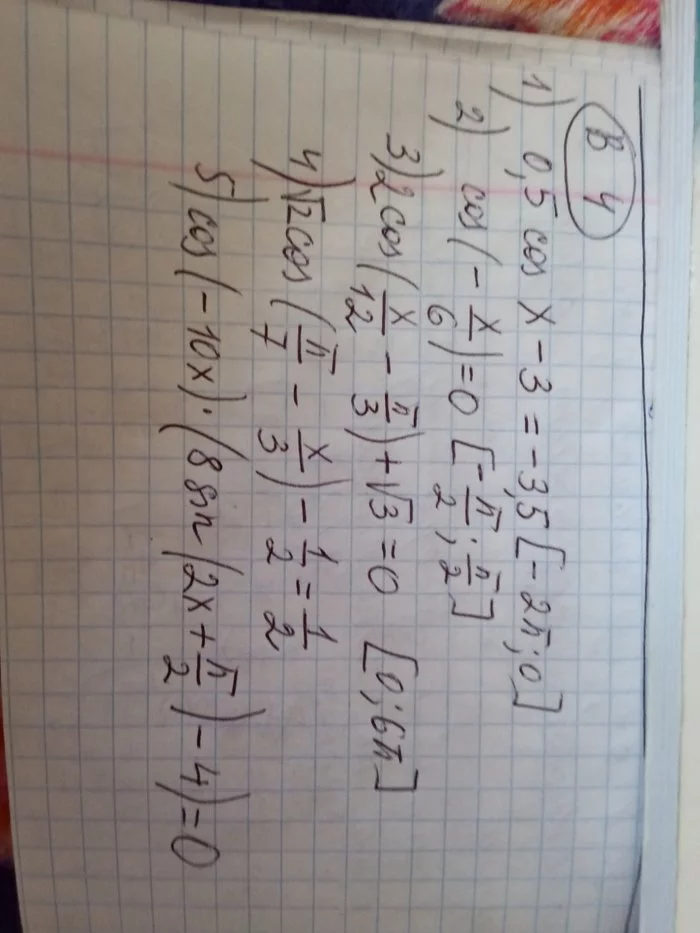 В 4
1) 0,5 cos x - 3 = -3,5 [-2π; 0]
2) cos(-x/6) = 0 [-π/2; π/2]
3) 2 cos(x/12 - π/3) + √3 = 0 [0; 6π]
4) √2 cos(π/7 - x/3) - 1/2 = 1/2
5) cos(-10x) · (8 sin(2x + π/2) - 4) = 0